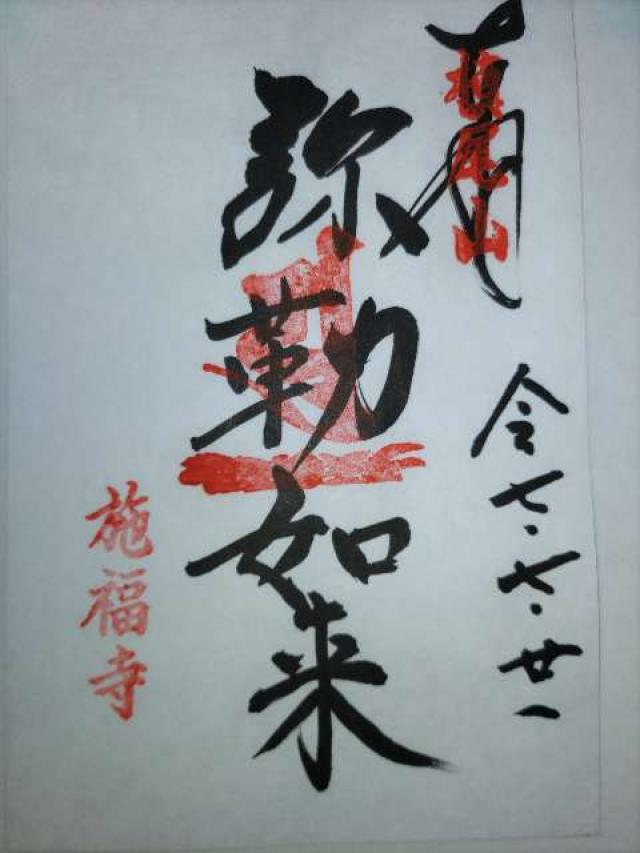 奉拝
槇尾山
令七.七.廿一
弥勒如来
施福寺